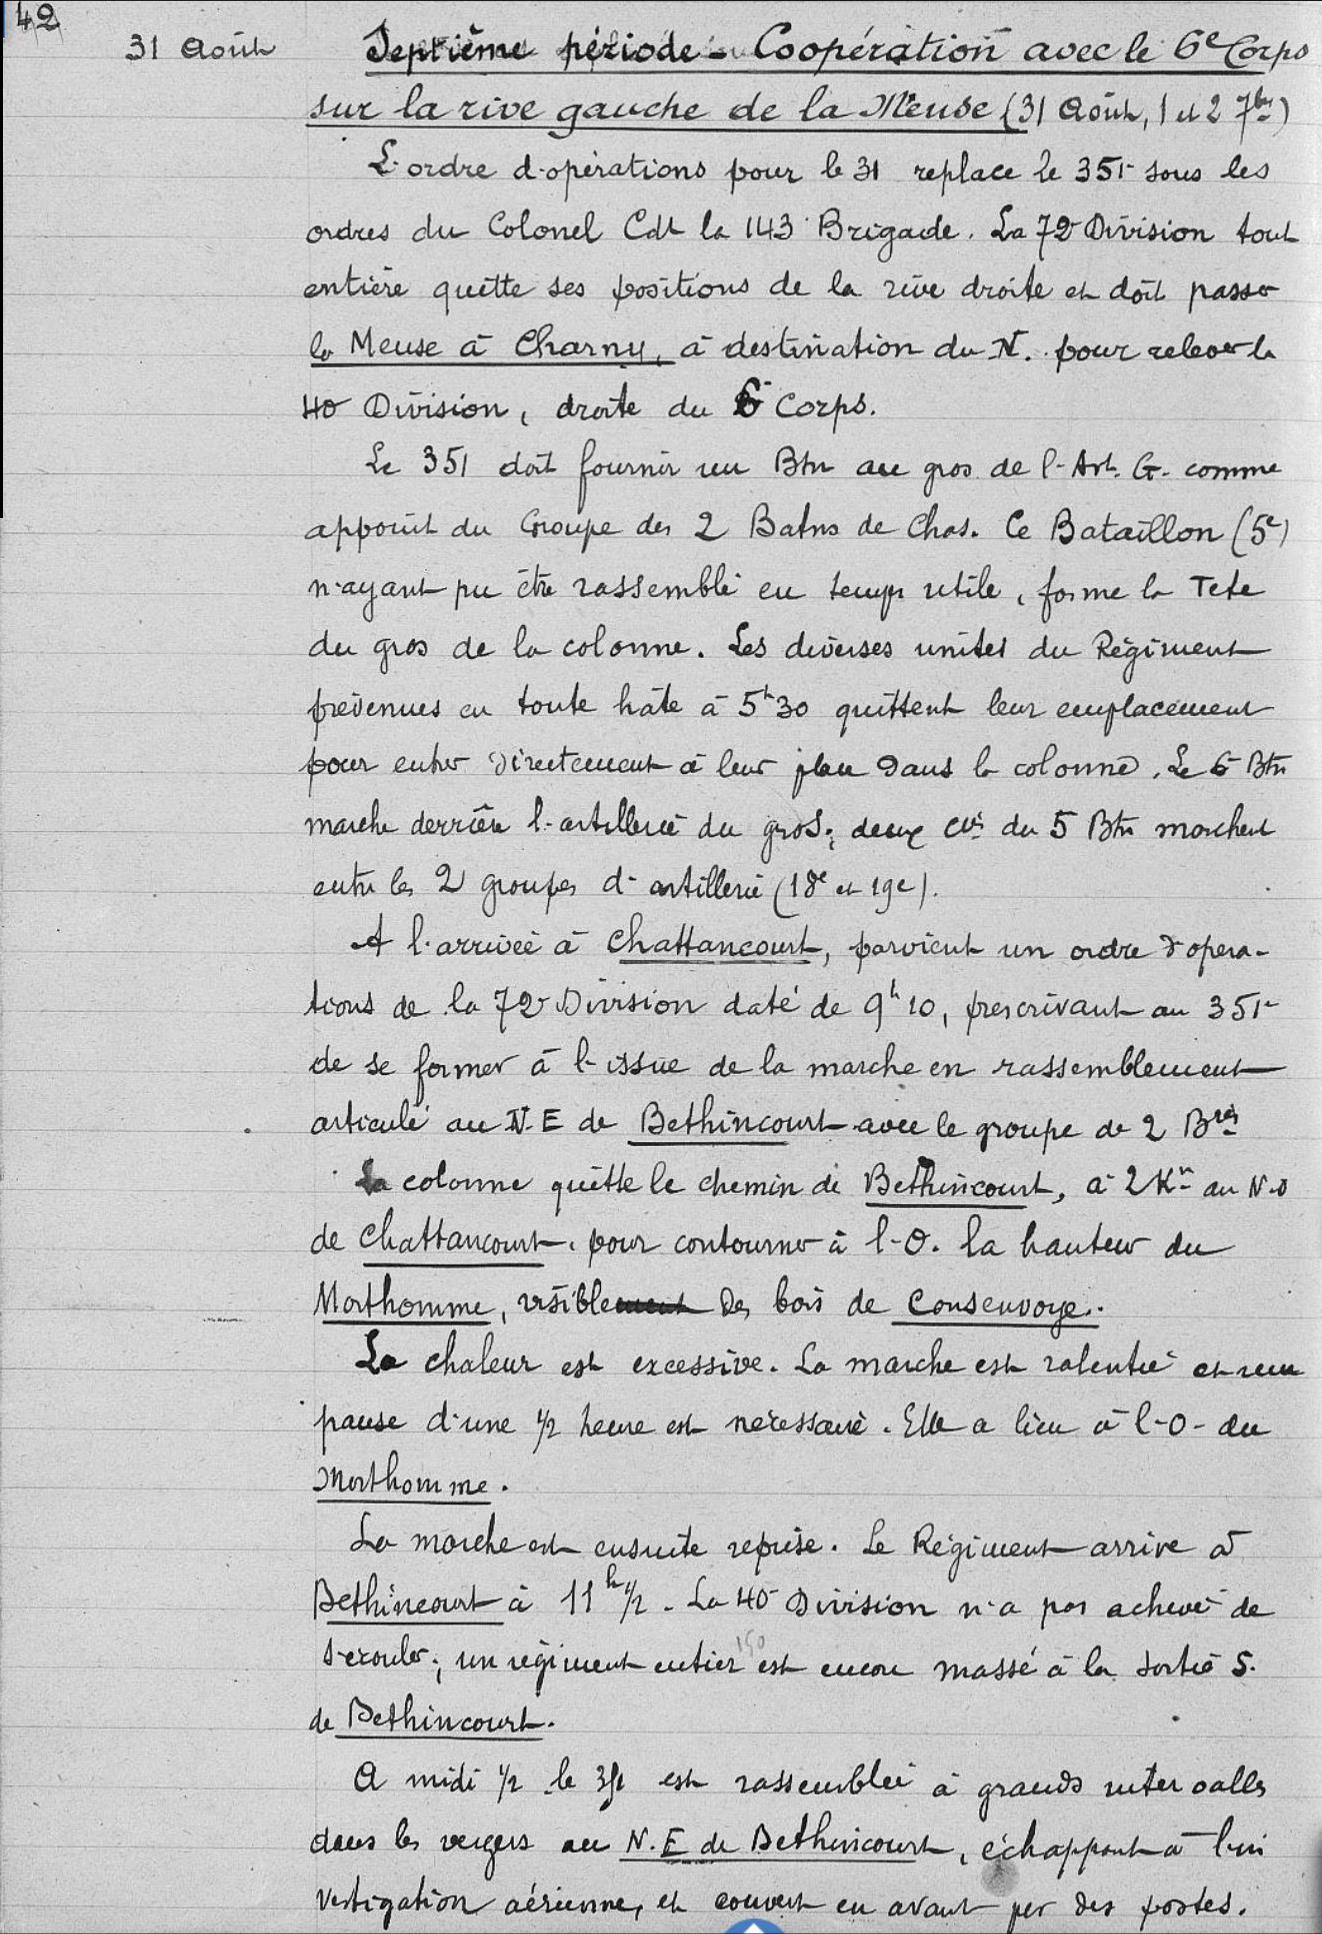 42
31 Août
Septième période - Coopération avec le 6e Corps
sur la rive gauche de la Meuse (31 Août, 1 et 2 7bre)
L'ordre d'opérations pour le 31 replace le 351e sous les
ordres du Colonel Cdt la 143 Brigade. La 72e Division tout
entière quitte ses positions de la rive droite et doit passer
la Meuse à Charny, à destination du N. pour relever la
40 Division, droite du 6e Corps.
Le 351 doit fournir un Btn au gros de l'Art. G. comme
appoint du Groupe des 2 Batns de Chas. Ce Bataillon (5e)
n'ayant pu être rassemblé en temps utile, forme la Tete
du gros de la colonne. Les diverses unités du Régiment
prévenues en toute hâte à 5h30 quittent leur emplacement
pour entrer directement à leur place dans la colonne. Le 6e Btn
marche derrière l'artillerie du gros; deux Cies du 5 Btn marchent
entre les 2 groupes d'artillerie (18e et 19e).
A l'arrivée à Chattancourt, parvient un ordre d'opéra-
tions de la 72e Division daté de 9h10, prescrivant au 351e
de se former à l'issue de la marche en rassemblement
articulé au N.E de Bethincourt avec le groupe de 2 Bies
La colonne quitte le chemin de Bethincourt, à 2 Km au N.O
de Chattancourt, pour contourner à l'O. la hauteur du
Morthomme, visiblement des bois de Consenvoye.
La chaleur est excessive. La marche est ralentie et une
pause d'une 1/2 heure est nécessaire. Elle a lieu à l'O- du
Morthomme.
La marche est ensuite reprise. Le Régiment arrive à
Bethincourt à 11h1/2. La 40e Division n'a pas achevé de
s'écouler; un régiment entier 150 est encore massé à la sortie S.
de Bethincourt.
A midi 1/2 le 351 est rassemblé à grands intervalles
dans les vergers au N.E de Bethincourt, échappant à l'in
vestigation aérienne, et couvert en avant par des postes.